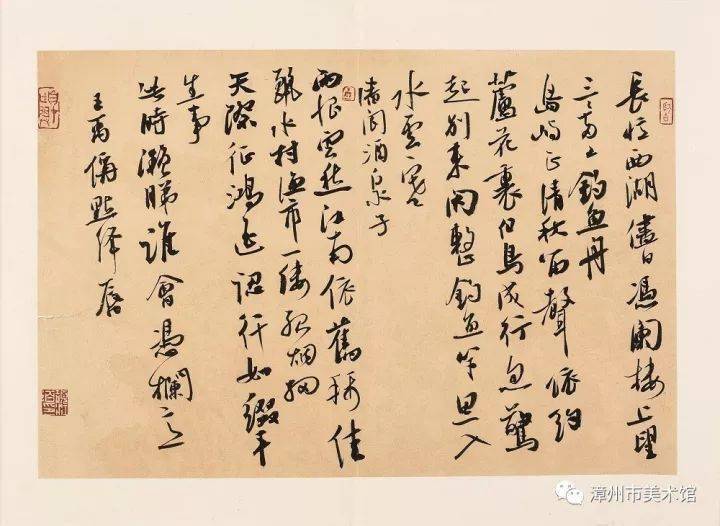 長憶西湖儘日憑闌樓上望
三〻兩〻釣魚舟
島嶼正清秋笛聲依約
蘆花裏白鳥成行忽驚
起別來閑整釣魚竿思入
水雲寒
潘閬酒泉子
雨恨雲愁江南依舊稱佳
麗水村漁市一縷孤烟細
天際征鴻遙認行如綴平
生事
此時凝睇誰會憑欄意
王禹偁點絳唇
漳州市美术馆